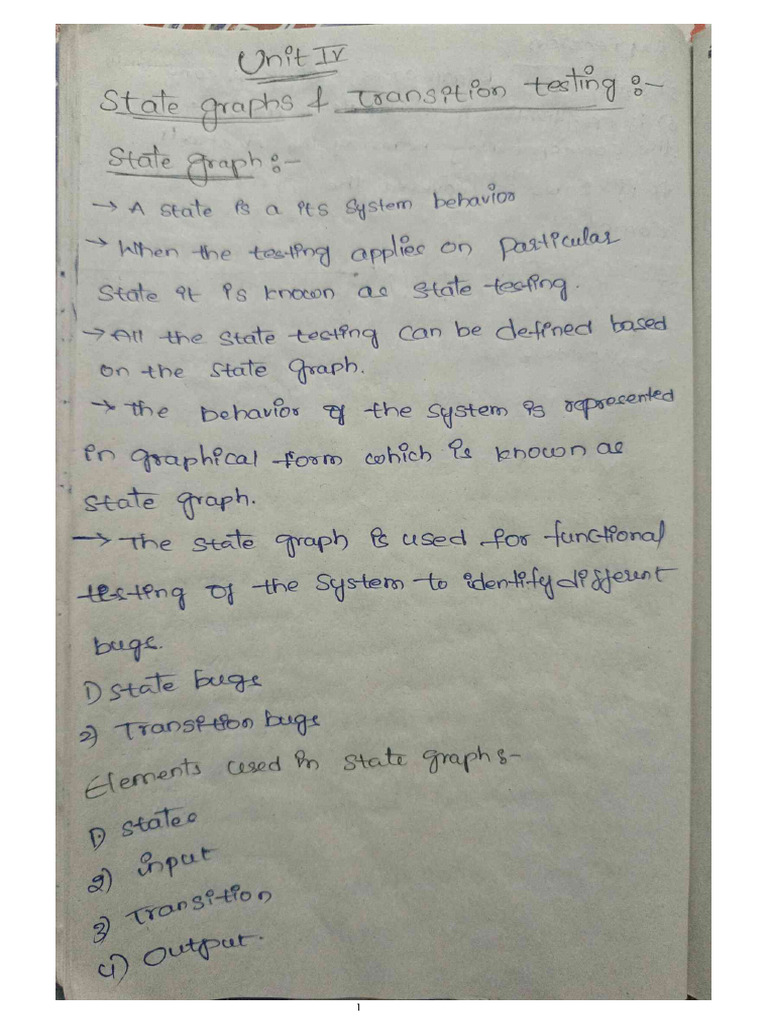 Unit IV
State graphs & Transition testing :-
State graph :-
→ A state is a its system behavior
→ When the testing applies on particular
state it is known as state testing.
→ All the state testing can be defined based
on the state graph.
→ The behavior of the system is represented
in graphical form which is known as
state graph.
→ The state graph is used for functional
testing of the system to identify different
bugs.
1) state bugs
2) Transition bugs
Elements used in state graph :-
1) states
2) input
3) Transition
4) Output.
1